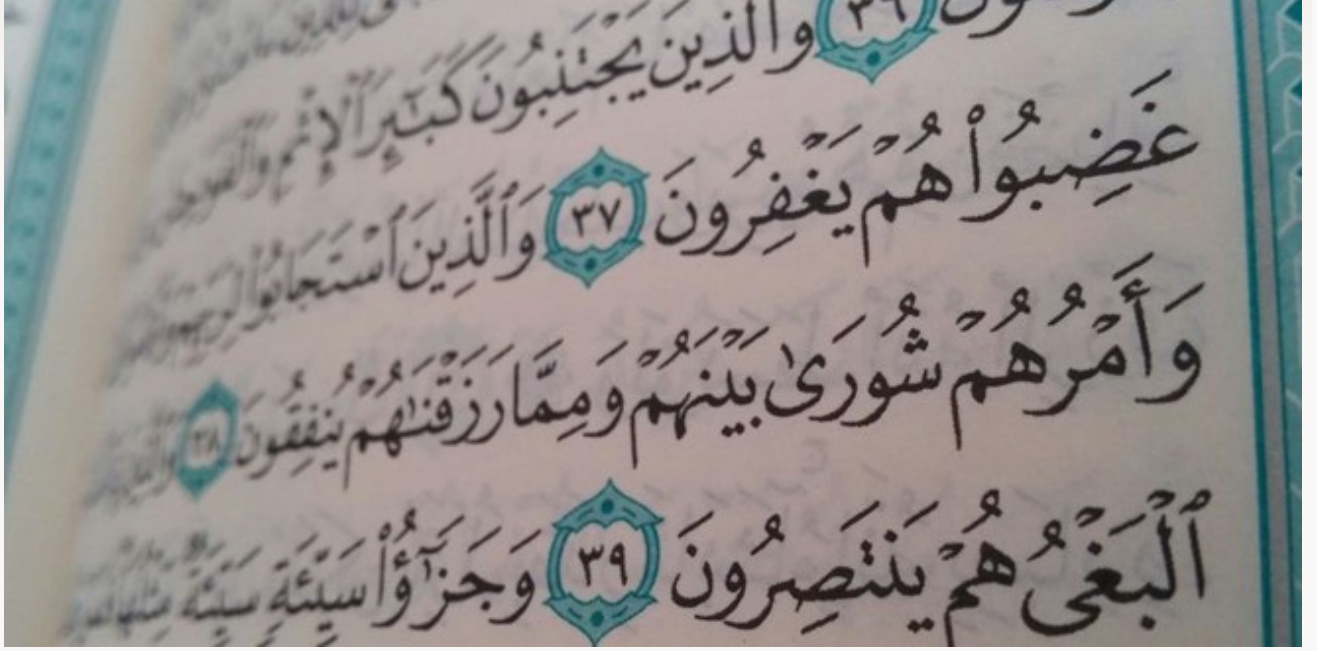 ٣٦ وَالَّذِينَ يَجْتَنِبُونَ كَبَٰٓئِرَ ٱلْإِثْمِ
غَضِبُوا۟ هُمْ يَغْفِرُونَ ٣٧ وَٱلَّذِينَ ٱسْتَجَابُوا۟
وَأَمْرُهُمْ شُورَىٰ بَيْنَهُمْ وَمِمَّا رَزَقْنَٰهُمْ يُنفِقُونَ ٣٨
ٱلْبَغْىُ هُمْ يَنتَصِرُونَ ٣٩ وَجَزَٰٓؤُا۟ سَيِّئَةٍ سَيِّئَةٌ